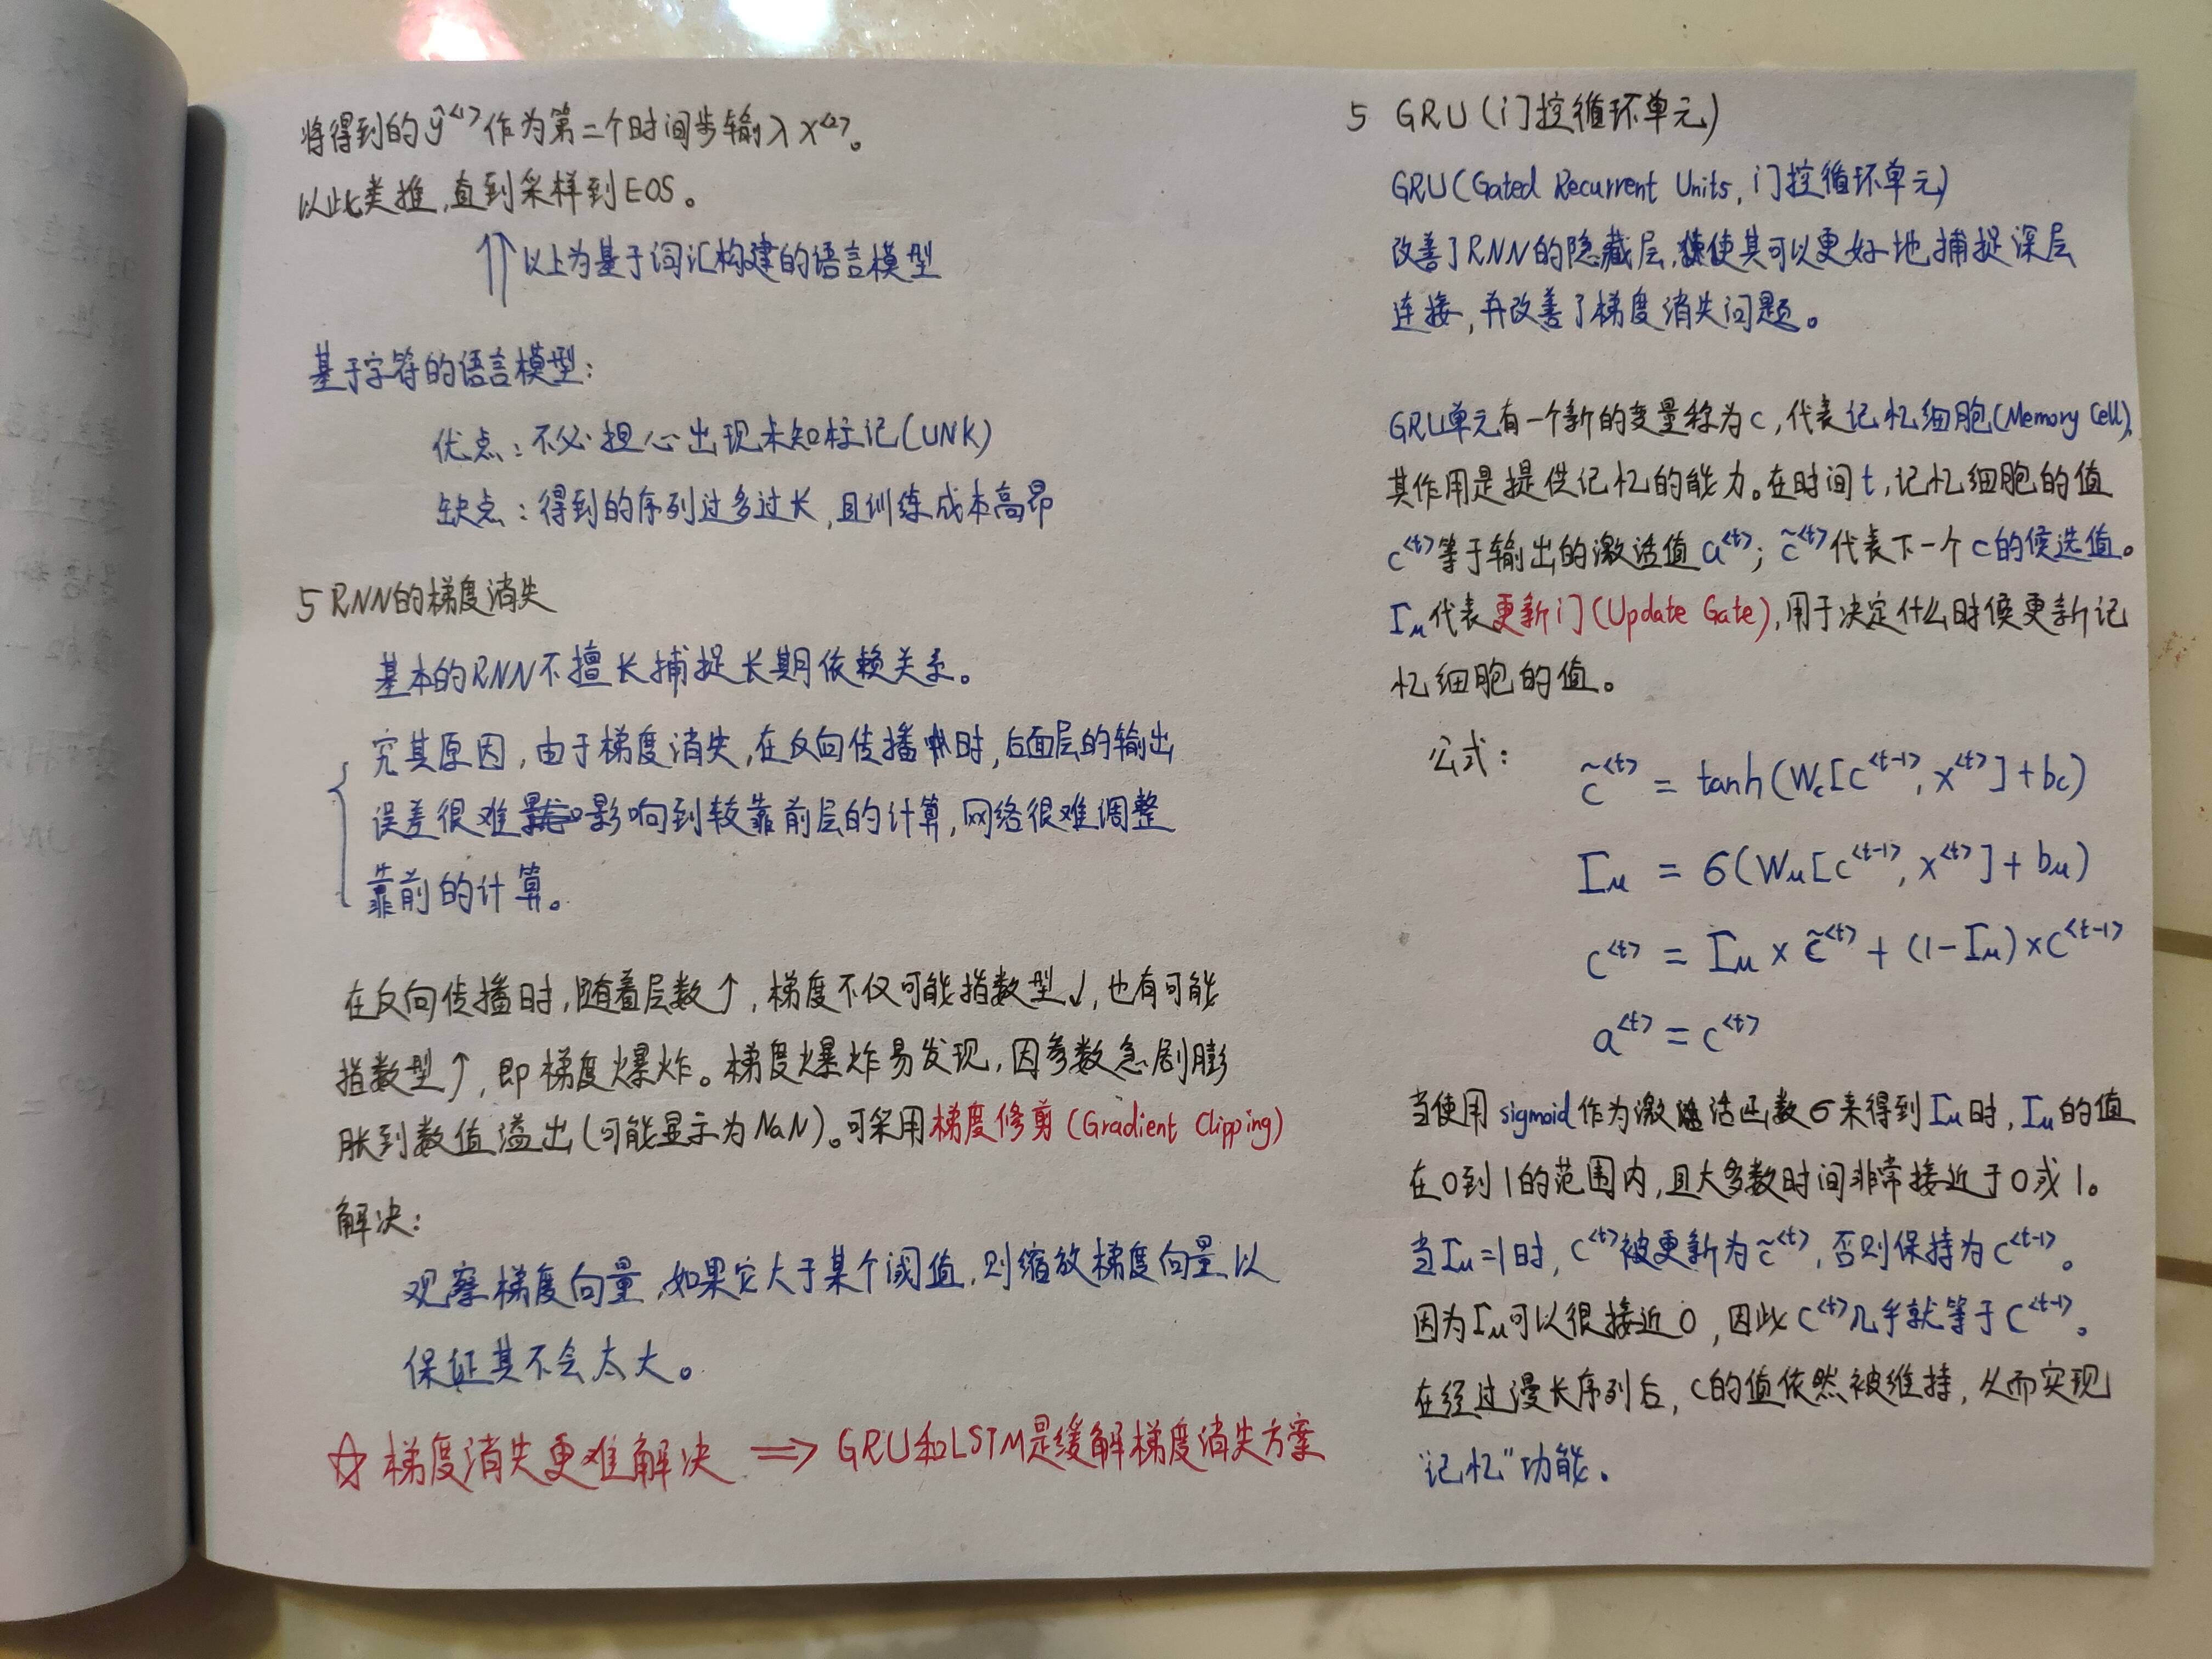 将得到的ŷ<1>作为第二个时间步输入x<2>。
以此类推,直到采样到EOS。
⇑以上为基于词汇构建的语言模型
基于字符的语言模型:
优点:不必担心出现未知标记(UNK)
缺点:得到的序列过多过长,且训练成本高昂
5 RNN的梯度消失
基本的RNN不擅长捕捉长期依赖关系。
究其原因,由于梯度消失,在反向传播时,后面层的输出
误差很难影响到较靠前层的计算,网络很难调整
靠前的计算。
在反向传播时,随着层数↑,梯度不仅可能指数型↓,也有可能
指数型↑,即梯度爆炸。梯度爆炸易发现,因参数急剧膨
胀到数值溢出(可能显示为NaN)。可采用梯度修剪(Gradient Clipping)
解决:
观察梯度向量,如果它大于某个阈值,则缩放梯度向量以
保证其不会太大。
☆梯度消失更难解决 ⇒ GRU和LSTM是缓解梯度消失方案
5 GRU(门控循环单元)
GRU(Gated Recurrent Units,门控循环单元)
改善了RNN的隐藏层,使其可以更好地捕捉深层
连接,并改善了梯度消失问题。
GRU单元有一个新的变量称为c,代表记忆细胞(Memory Cell),
其作用是提供记忆的能力。在时间t,记忆细胞的值
c<t>等于输出的激活值a<t>;c̃<t>代表下一个c的候选值。
Γu代表更新门(Update Gate),用于决定什么时候更新记
忆细胞的值。
公式: c̃<t> = tanh(Wc[c<t-1>, x<t>]+bc)
Γu = σ(Wu[c<t-1>, x<t>]+bu)
c<t> = Γu × c̃<t> + (1-Γu)×c<t-1>
a<t> = c<t>
当使用sigmoid作为激活函数σ来得到Γu时,Γu的值
在0到1的范围内,且大多数时间非常接近于0或1。
当Γu=1时,c<t>被更新为c̃<t>,否则保持为c<t-1>。
因为Γu可以很接近0,因此c<t>几乎就等于c<t-1>。
在经过漫长序列后,c的值依然被维持,从而实现
"记忆"功能。